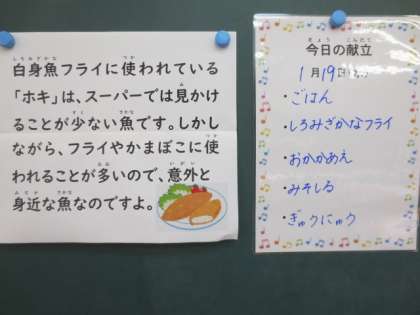 白身魚フライに使われている
「ホキ」は、スーパーでは見かけ
ることが少ない魚です。しかし
ながら、フライやかまぼこに使
われることが多いので、意外と
身近な魚なのですよ。
今日の献立
1月19日
・ごはん
・しろみざかなフライ
・おかかあえ
・みそしる
・ぎゅうにゅう